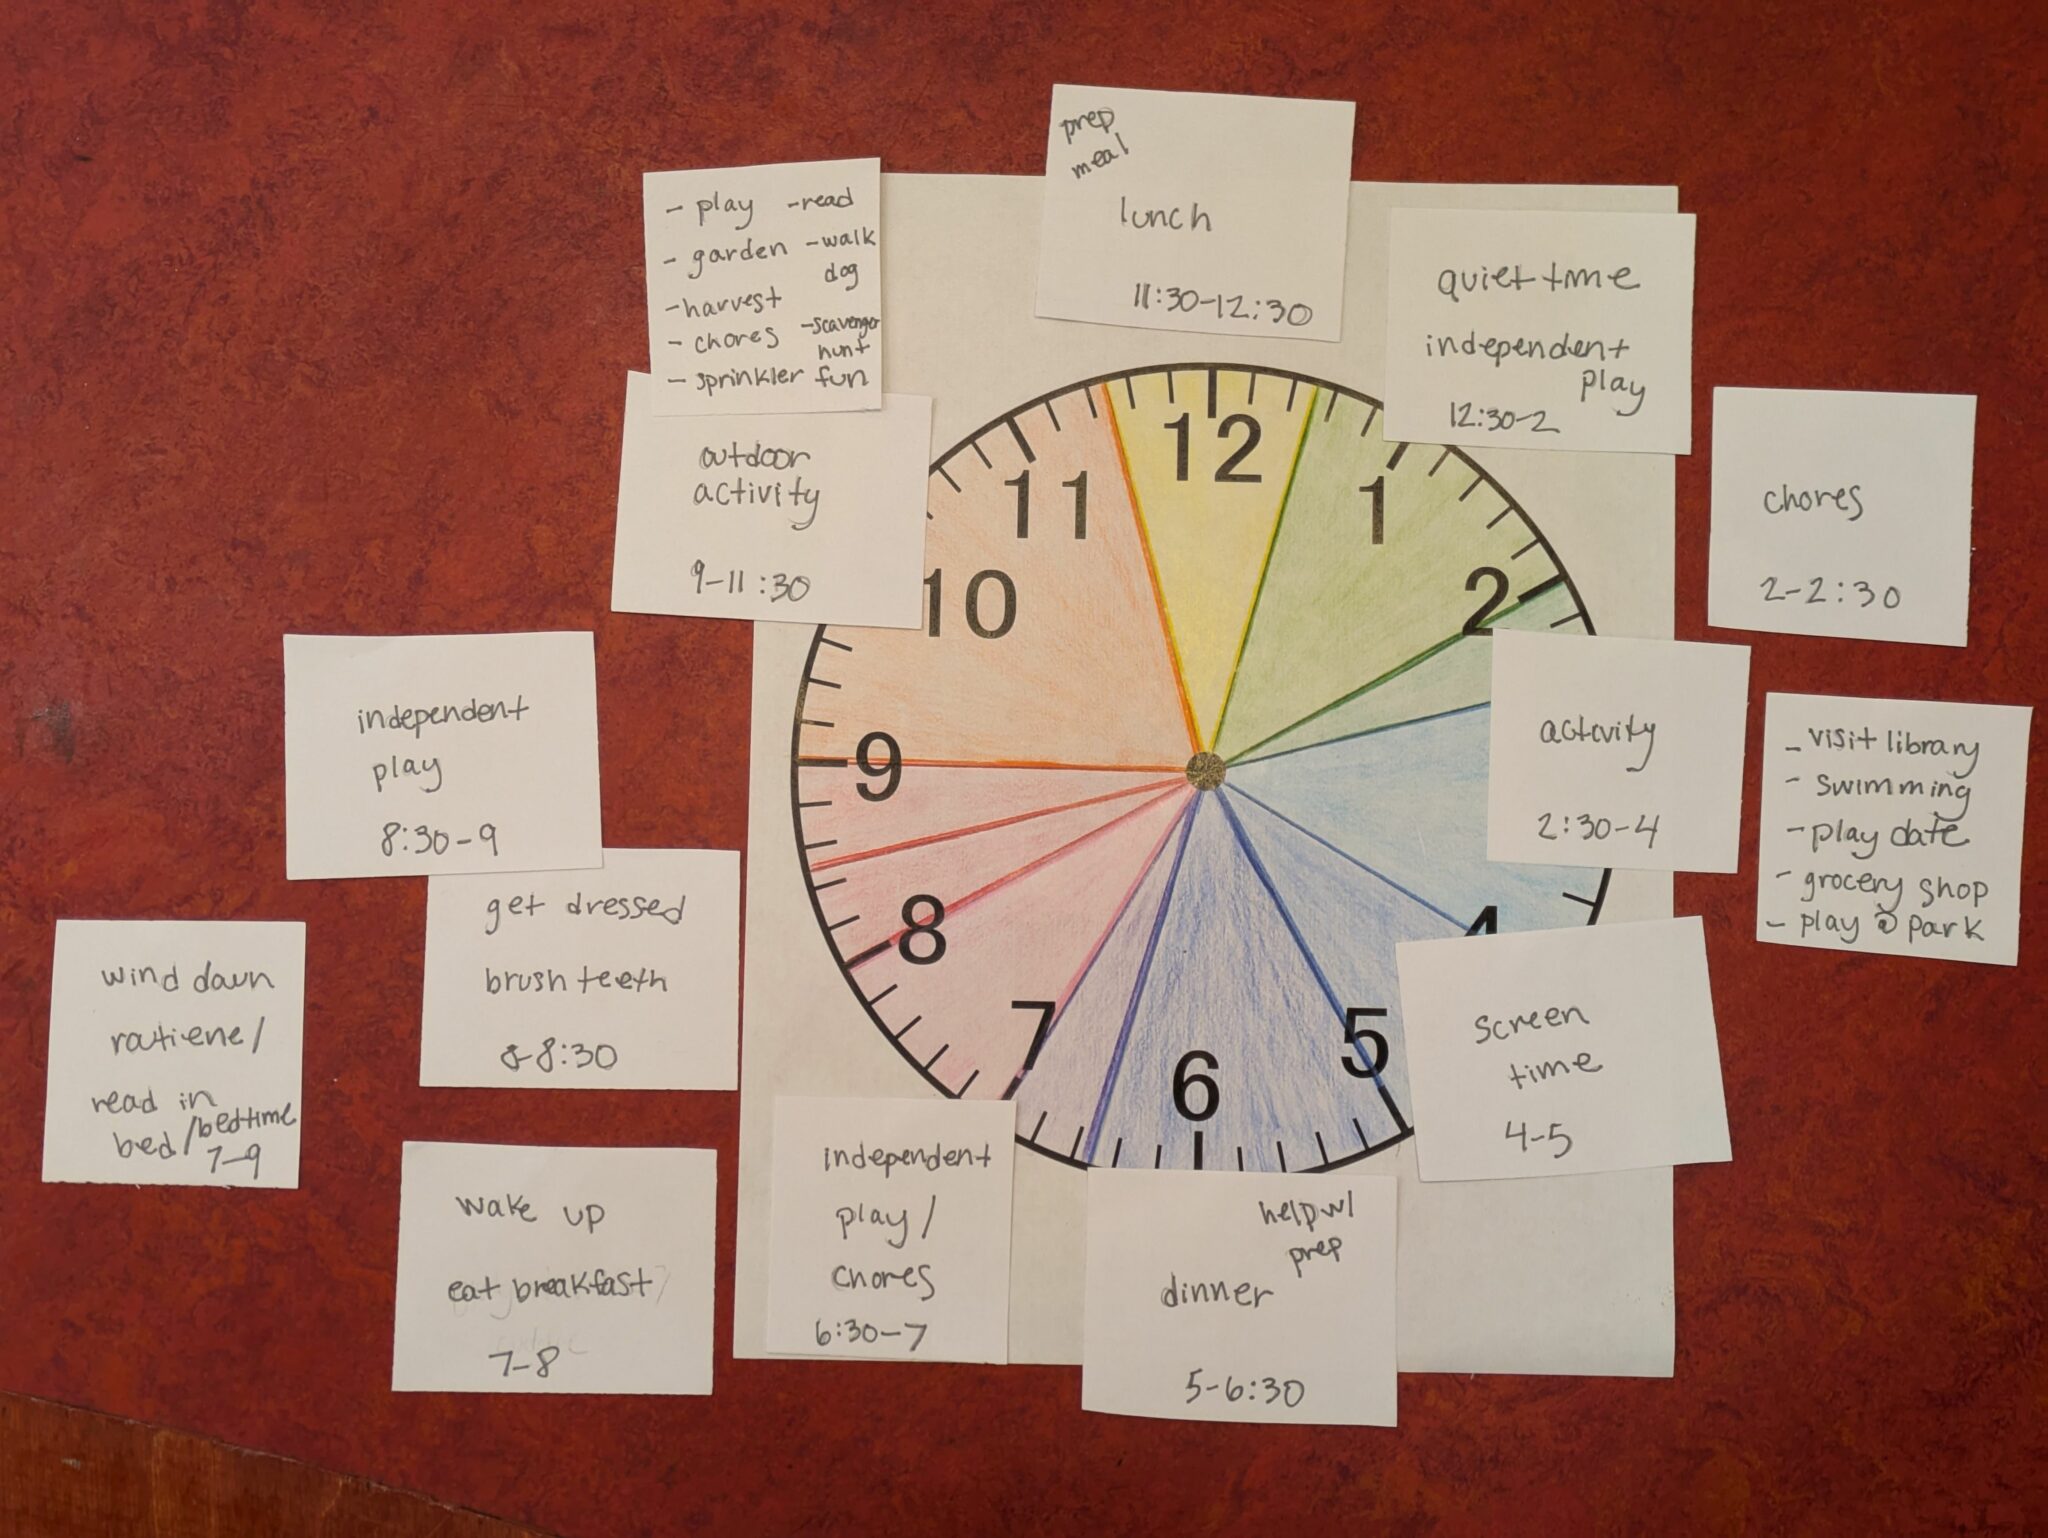 prep
meal
lunch
11:30-12:30
- play - read
- garden - walk
dog
- harvest
- chores - scavenger
hunt
- sprinkler fun
outdoor
activity
9-11:30
quiet time
independent
play
12:30-2
chores
2-2:30
activity
2:30-4
- visit library
- swimming
- play date
- grocery shop
- play @ park
screen
time
4-5
help w/
prep
dinner
5-6:30
independent
play/
chores
6:30-7
wake up
eat breakfast
7-8
get dressed
brush teeth
8-8:30
independent
play
8:30-9
wind down
routiene/
read in
bed/bedtime
7-9
12
1
2
4
5
6
7
8
9
10
11